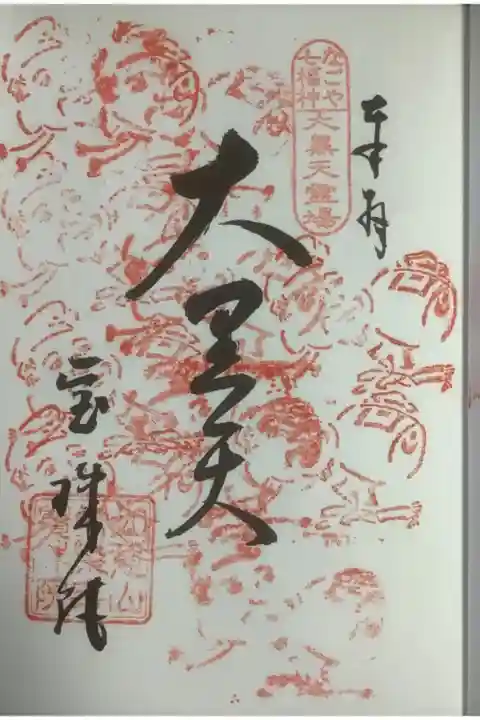 奉拝
なごや
七福神
大黒天霊場
大黒天
宝珠院